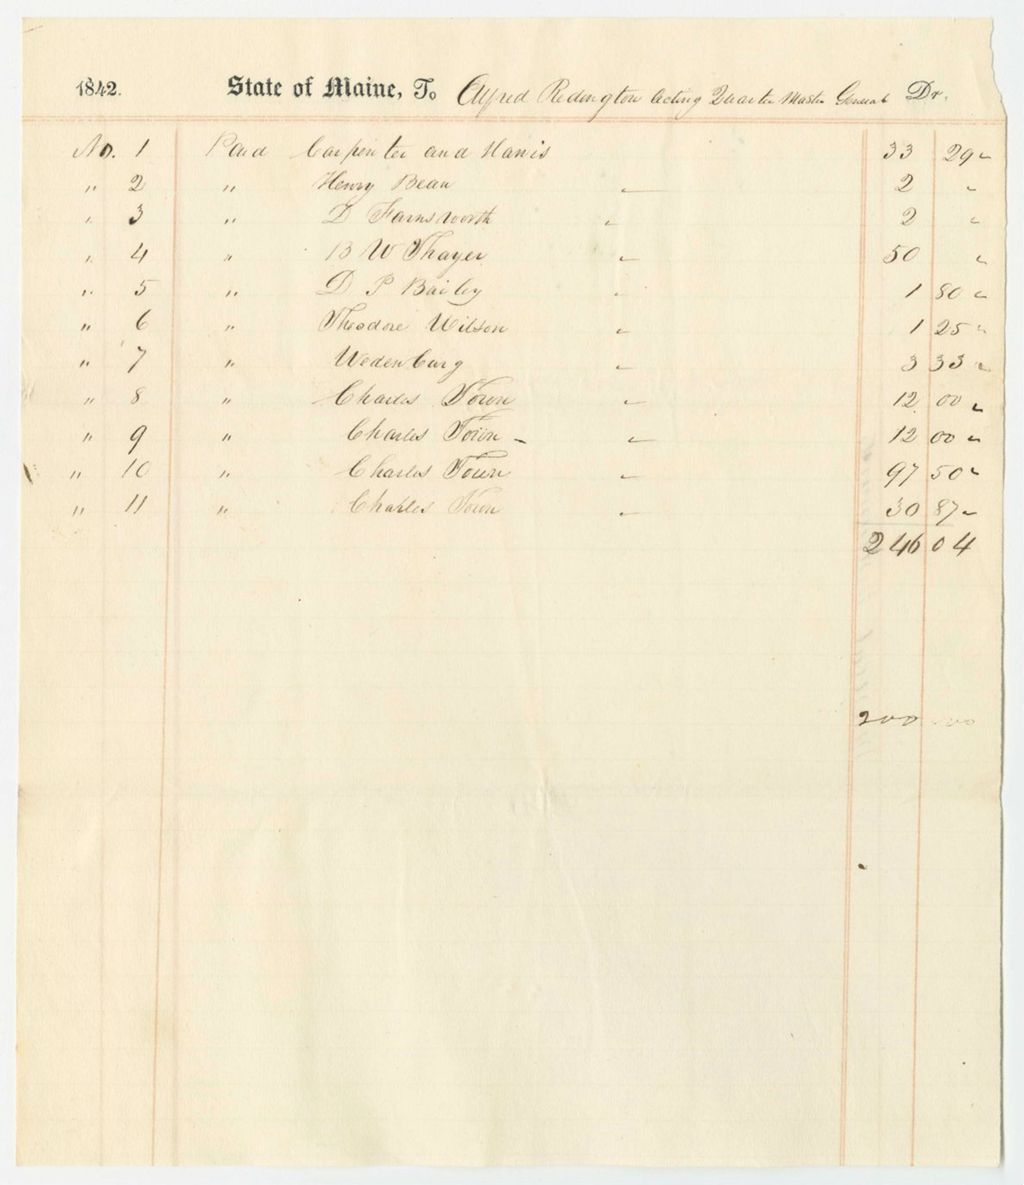 1842. State of Maine, To Alfred Redington Acting Quarter Master General Dr.
No. 1 Paid Carpenter and Harris 33 29
" 2 " Henry Bean 2
" 3 " D Farnsworth 2
" 4 " B W Thayer 50
" 5 " D P Bailey 1 80
" 6 " Theodore Wilson 1 25
" 7 " Wedenburg 3 33
" 8 " Charles Town 12 00
" 9 " Charles Town - 12 00
" 10 " Charles Town 97 50
" 11 " Charles Town 30 87
246 04
200 00